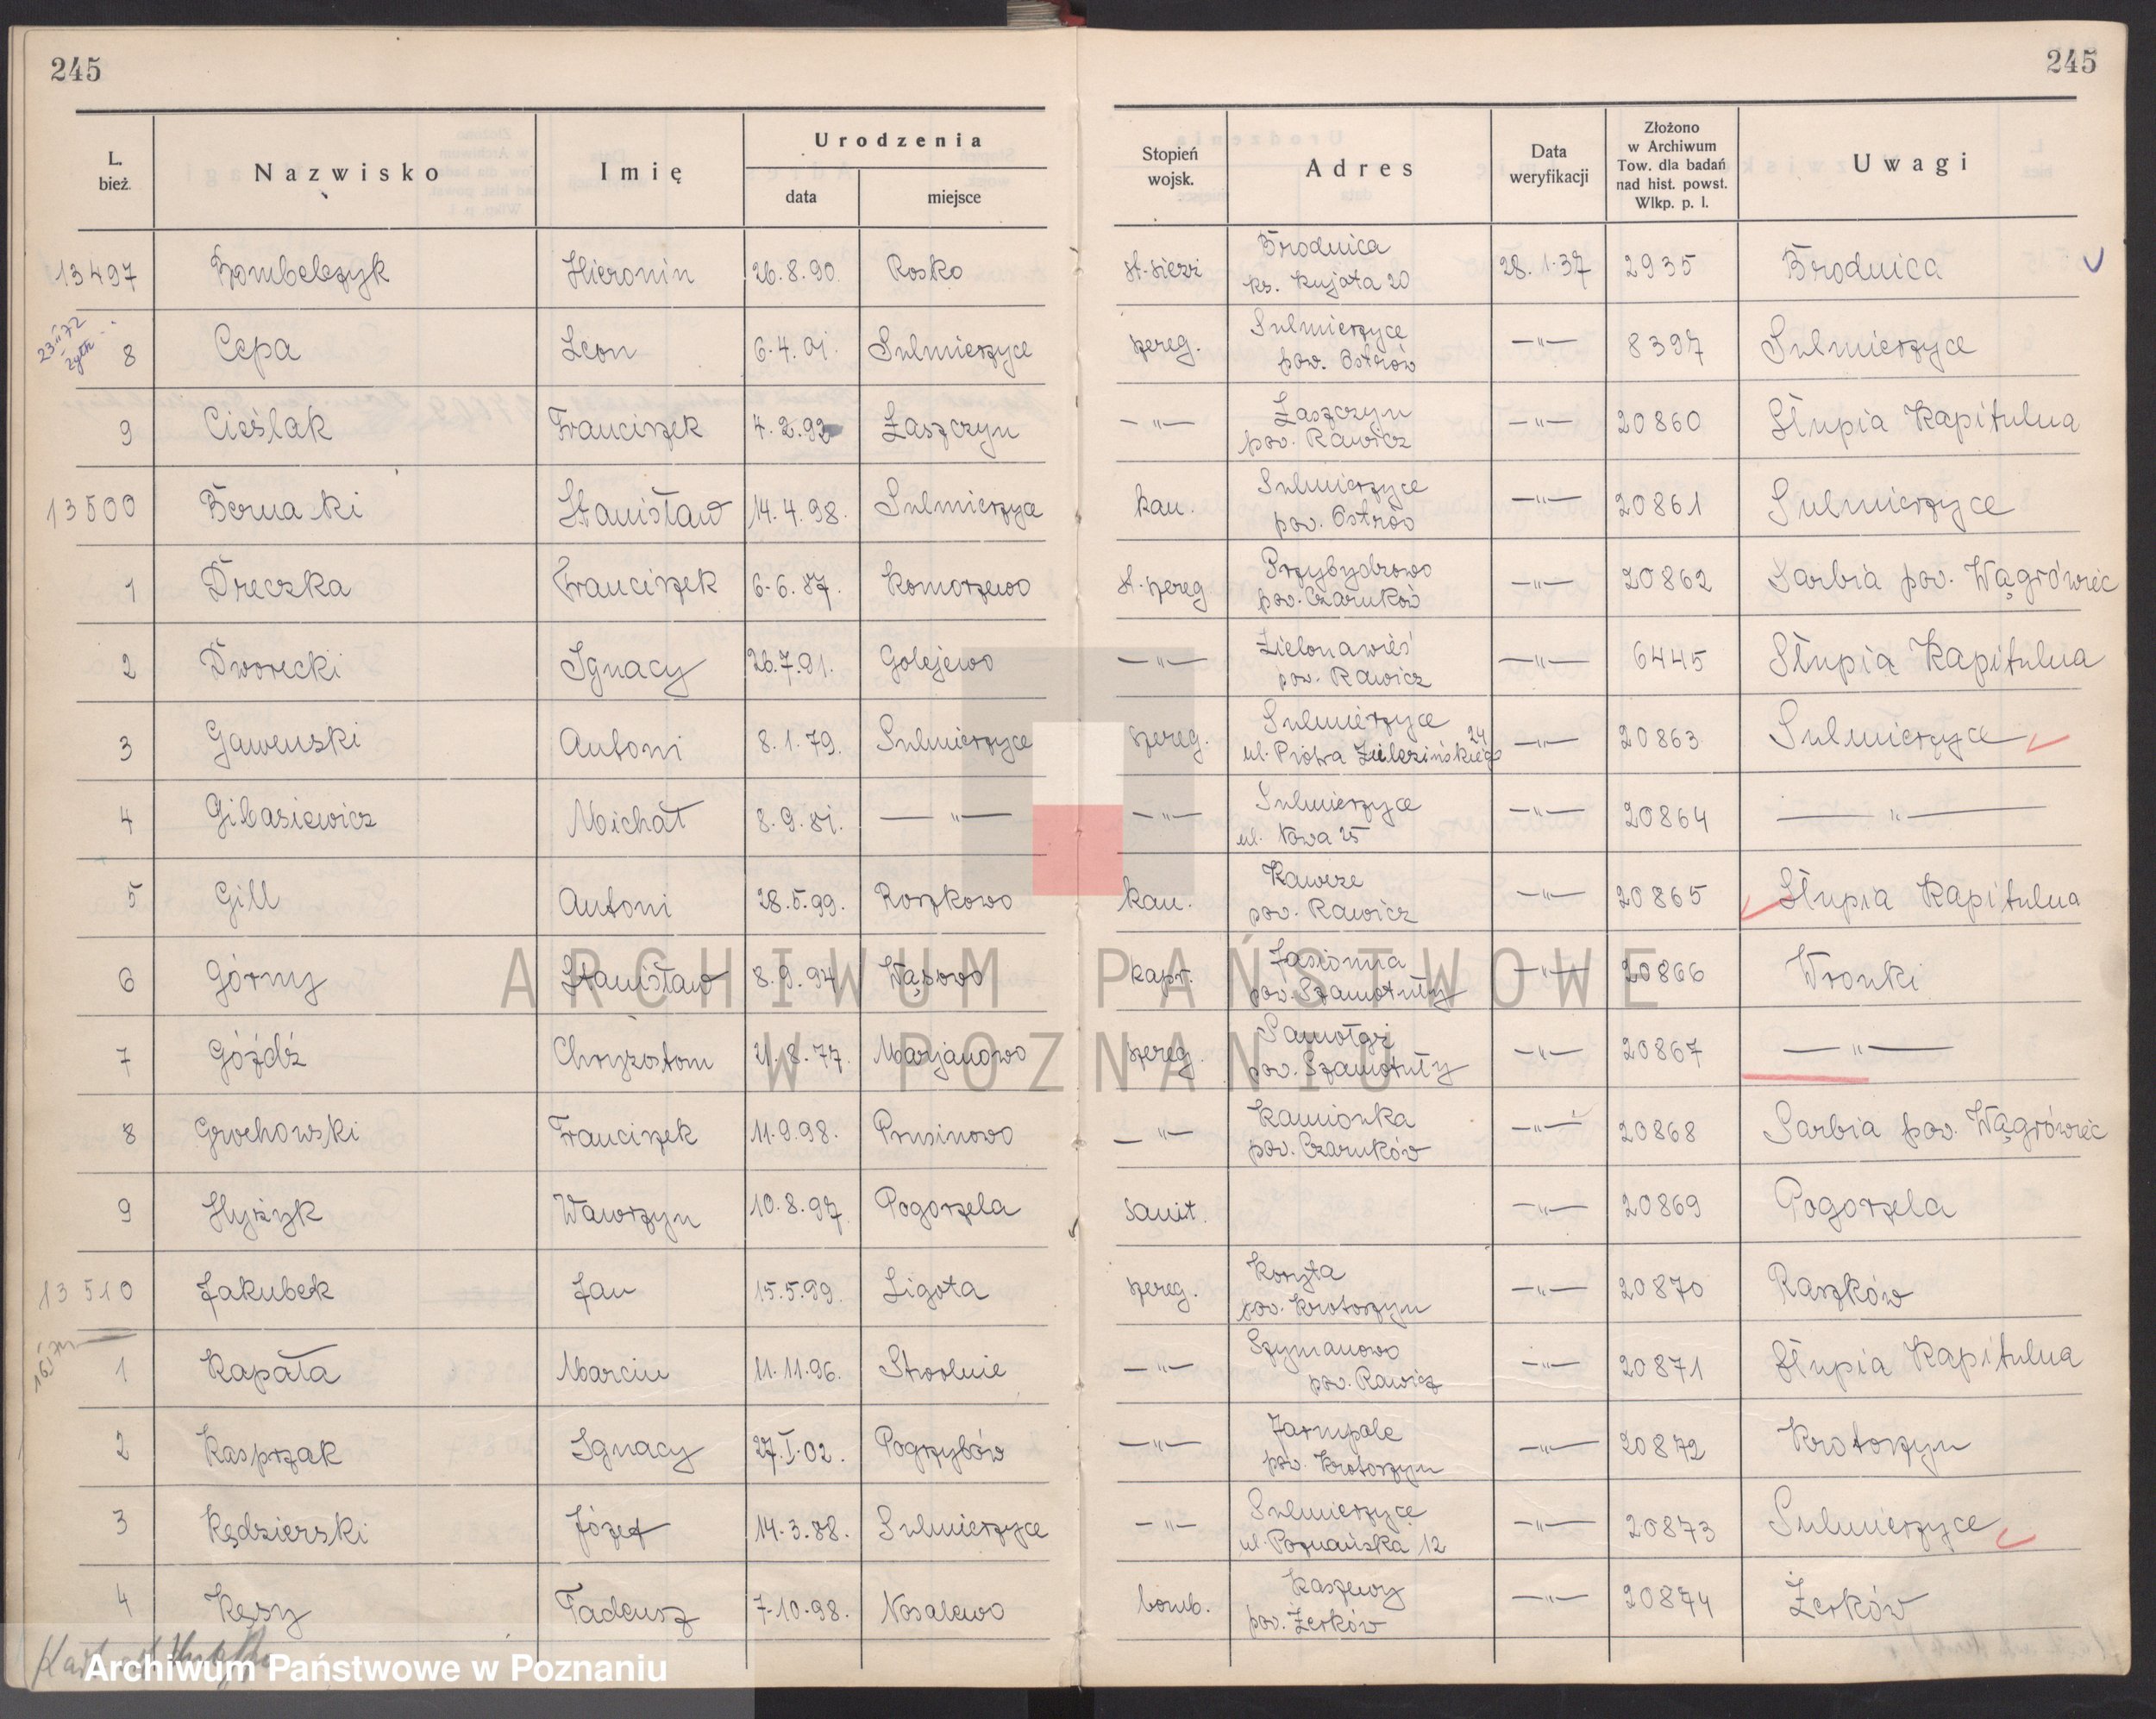 245
245
L. bież.
Nazwisko
Imię
Urodzenia
data
miejsce
Stopień wojsk.
Adres
Data weryfikacji
Złożono w Archiwum Tow. dla badań nad hist. powst. Wlkp. p. l.
Uwagi
13497 Bombelczyk Hieronin 26.8.90 Rosko st. sierż Brodnica ks. Kujota 20 28.1.37 2935 Brodnica
8 Cepa Leon 6.4.01. Sulmierzyce szereg. Sulmierzyce pow. Ostrów —"— 8397 Sulmierzyce
9 Cieślak Franciszek 4.2.92 Łaszczyn —"— Łaszczyn pow. Rawicz —"— 20860 Słupia Kapitulna
13500 Stanisław 14.4.98. Sulmierzyce kan. Sulmierzyce pow. Ostrów —"— 20861 Sulmierzyce
1 Dreczka Franciszek 6.6.87. Komorzewo st. szereg Przybychowo pow. Czarnków —"— 20862 Sarbia pow. Wągrówiec
2 Dworecki Ignacy 26.7.91. Golejewo —"— Zielonawieś pow. Rawicz —"— 6445 Słupia Kapitulna
3 Gawenski Antoni 8.1.79. Sulmierzyce szereg. Sulmierzyce ul. Piotra 24 —"— 20863 Sulmierzyce
4 Gibasiewicz Michał 8.9.81. —"— —"— Sulmierzyce ul. Nowa 25 —"— 20864 —"—
5 Gill Antoni 28.5.99. Roszkowo kan. Kawcze pow. Rawicz —"— 20865 Słupia Kapitulna
6 Górny Stanisław 8.9.94 Wąsowo kapr. Jasionna pow. Szamotuły —"— 20866 Wronki
7 Góźdź Chryzostom 21.8.77. Marjanowo szereg. pow. Szamotuły —"— 20867 —"—
8 Grochowski Franciszek 11.9.98. Prusinowo —"— Kamionka pow. Czarnków —"— 20868 Sarbia pow. Wągrówiec
9 Hyżyk Wawrzyn 10.8.97 Pogorzela sanit. —"— 20869 Pogorzela
13510 Jakubek Jan 15.5.99. Ligota szereg. Koryta pow. Krotoszyn —"— 20870 Raszków
1 Kapała Marcin 11.11.96. Stwolnie —"— Szymanowo pow. Rawicz —"— 20871 Słupia Kapitulna
2 Kasprzak Ignacy 27.I.02. Pogrzybów —"— pow. Krotoszyn —"— 20872 Krotoszyn
3 Kędzierski Józef 14.3.88. Sulmierzyce —"— Sulmierzyce ul. Poznańska 12 —"— 20873 Sulmierzyce
4 Kęsy Tadeusz 7.10.98. Nosalewo bomb. Kaszewy pow. Żerków —"— 20874 Żerków
ARCHIWUM PAŃSTWOWE
W POZNANIU
Archiwum Państwowe w Poznaniu